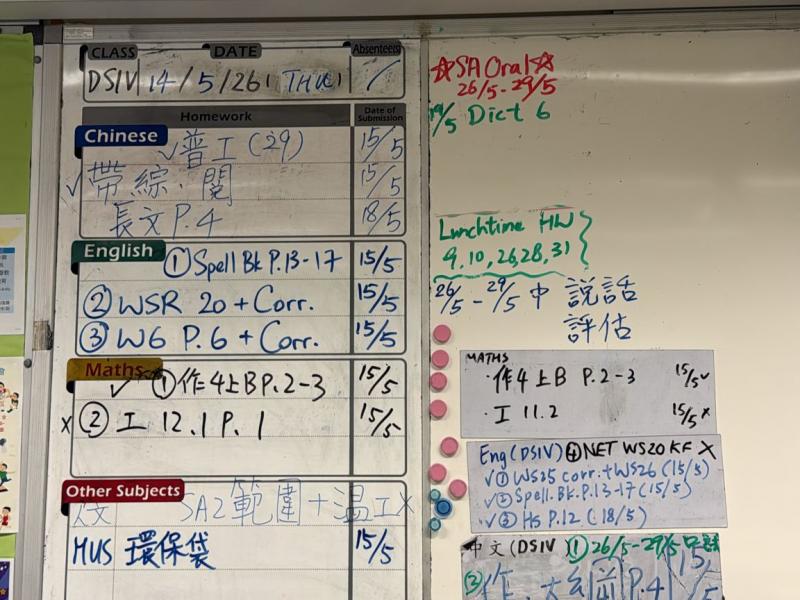 CLASS DATE Absentee(s)
DSIV 14/5/26 THU
Homework Date of Submission
Chinese
✓普工(29) 15/5
✓帶綜、閱 15/5
長文P.4 18/5
English
①Spell Bk P.13-17 15/5
②WSR 20 + Corr. 15/5
③W6 P.6 + Corr. 15/5
Maths
✓①作4上B P.2-3 15/5
x②工 12.1 P.1 15/5
Other Subjects
SA2範圍+温工X
MUS 環保袋 15/5
☆SA Oral☆
26/5-29/5
19/5 Dict 6
Lunchtime HW
9,10,26,28,31
26/5-29/5中 說話
評估
MATHS
·作4上B P.2-3 15/5✓
·工 11.2 15/5 x
Eng (DSIV) ④NET WS20 KF X
✓①WS25 corr.+WS26 (15/5)
✓②Spell.Bk.P.13-17 (15/5)
✓③HS P.12 (18/5)
中文(DSIV) ①26/5-29/5
② 作 P.4 15/5